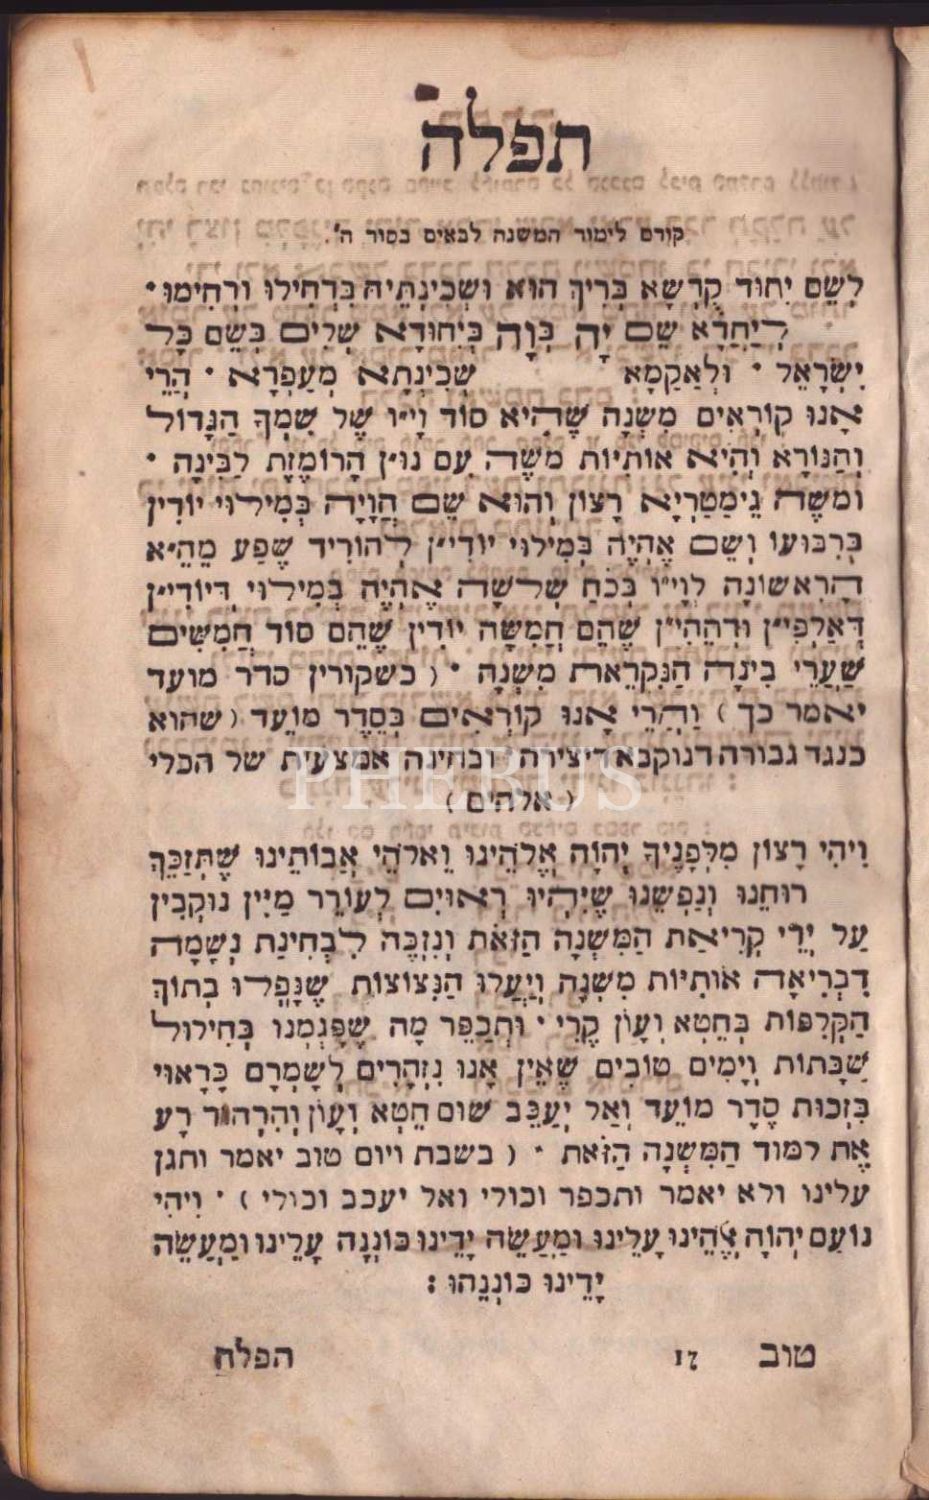 תפלה
קודם לימוד המשנה לבאים בסוד ה׳.
לְשֵׁם יִחוּד קֻדְשָׁא בְּרִיךְ הוּא וּשְׁכִינְתֵּיהּ בִּדְחִילוּ וּרְחִימוּ ·
לְיַחֲדָא שֵׁם יָהּ בְּוָה בְּיִחוּדָא שְׁלִים בְּשֵׁם כָּל
יִשְׂרָאֵל · וּלְאַקָמָא שְׁכִינְתָּא מֵעַפְרָא · הֲרֵי
אָנוּ קוֹרְאִים מִשְׁנָה שֶׁהִיא סוֹד וָי״ו שֶׁל שִׁמְךָ הַגָּדוֹל
וְהַנּוֹרָא וְהִיא אוֹתִיּוֹת מֹשֶׁה עִם נוּ״ן הָרוֹמֶזֶת לַבִּינָה ·
וּמֹשֶׁה גֵימַטְרִיָא רָצוֹן וְהוּא שֵׁם הֲוָיָה בְּמִילּוּי יוֹדִין
בְּרִבּוּעוֹ וְשֵׁם אֶהְיֶה בְּמִילּוּי יוֹדִי״ן לְהוֹרִיד שֶׁפַע מֵהֵ״א
הָרִאשׁוֹנָה לְוָי״ו בְּכֹחַ שְׁלֹשָׁה אֶהְיֶה בְּמִילּוּי דְּיוֹדִי״ן
דְּאַלְפִּי״ן וּדְהֵהִי״ן שֶׁהֵם חֲמִשָּׁה יוֹדִין שֶׁהֵם סוֹד חֲמִשִּׁים
שַׁעֲרֵי בִינָה הַנִּקְרֵאת מִשְׁנָה · (כשקורין סדר מועד
יאמר כך) וַהֲרֵי אָנוּ קוֹרְאִים בְּסֵדֶר מוֹעֵד (שהוא
כנגד גבורה דנוקבא דיצירה ובחינה אמצעית של הכלי
(אלהים)
וִיהִי רָצוֹן מִלְּפָנֶיךָ יְהֹוָה אֱלֹהֵינוּ וֵאלֹהֵי אֲבוֹתֵינוּ שֶׁתְּזַכֵּךְ
רוּחֵנוּ וְנַפְשֵׁנוּ שֶׁיִּהְיוּ רְאוּיִם לְעוֹרֵר מַיִּין נוּקְבִין
עַל יְדֵי קְרִיאַת הַמִּשְׁנָה הַזֹּאת וְנִזְכֶּה לִבְחִינַת נְשָׁמָה
דִבְרִיאָה אוֹתִיּוֹת מִשְׁנָה וְיַעֲלוּ הַנִּצוֹצוֹת שֶׁנָּפְלוּ בְתוֹךְ
הַקְּלִפּוֹת בְּחֵטְא וְעָוֹן קֶרִי · וּתְכַפֵּר מָה שֶׁפָּגַמְנוּ בְּחִילּוּל
שַׁבָּתוֹת וְיָמִים טוֹבִים שֶׁאֵין אָנוּ נִזְהָרִים לְשָׁמְרָם כָּרָאוּי
בִּזְכוּת סֵדֶר מוֹעֵד וְאַל יְעַכֵּב שׁוּם חֵטְא וְעָוֹן וְהִרְהוּר רָע
אֶת לִמּוּד הַמִּשְׁנָה הַזֹּאת · (בשבת ויום טוב יאמר ותגן
עלינו ולא יאמר ותכפר וכולי ואל יעכב וכולי) · וִיהִי
נוֹעַם יְהֹוָה אֱלֹהֵינוּ עָלֵינוּ וּמַעֲשֵׂה יָדֵינוּ כּוֹנְנָה עָלֵינוּ וּמַעֲשֵׂה
יָדֵינוּ כּוֹנְנֵהוּ :
טוב 17 הפלח
PHEBUS